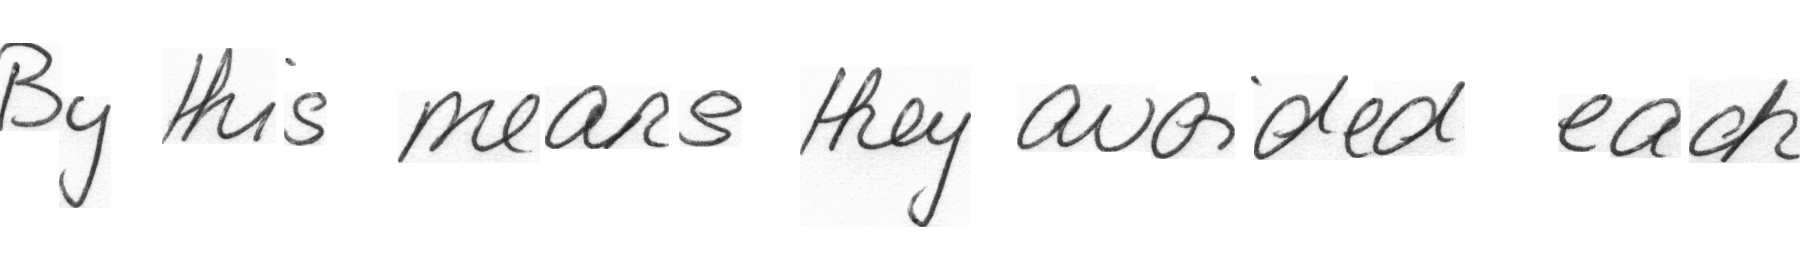 By this means they avoided each